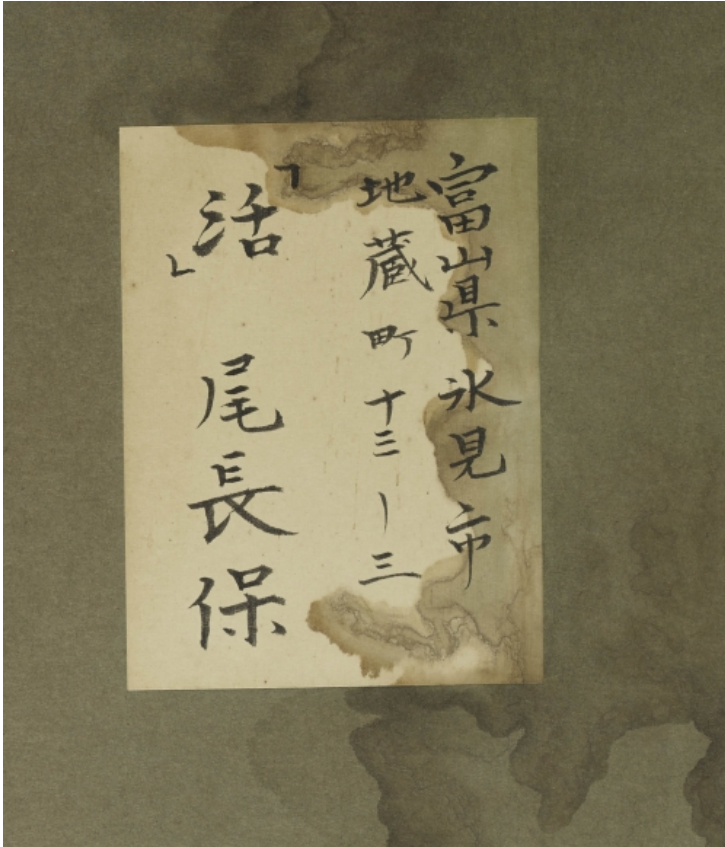 富山県氷見市
地蔵町十三ー三
「活」 尾長保